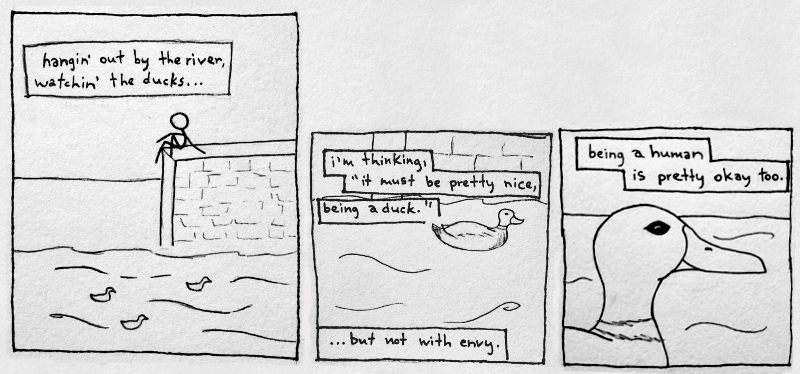 hangin' out by the river,
watchin' the ducks...
i'm thinking,
"it must be pretty nice,
being a duck."
...but not with envy.
being a human
is pretty okay too.